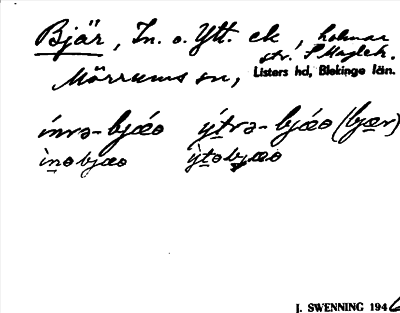 Bjär, In. o. Ytt. ek, holmar
str. S Maglek.
Mörrums sn, Listers hd, Blekinge län.
ínrə-bjǽo ýtrə-bjǽo (bjær)
ìnəbjæo ỳtəbjæo
J. SWENNING 1946